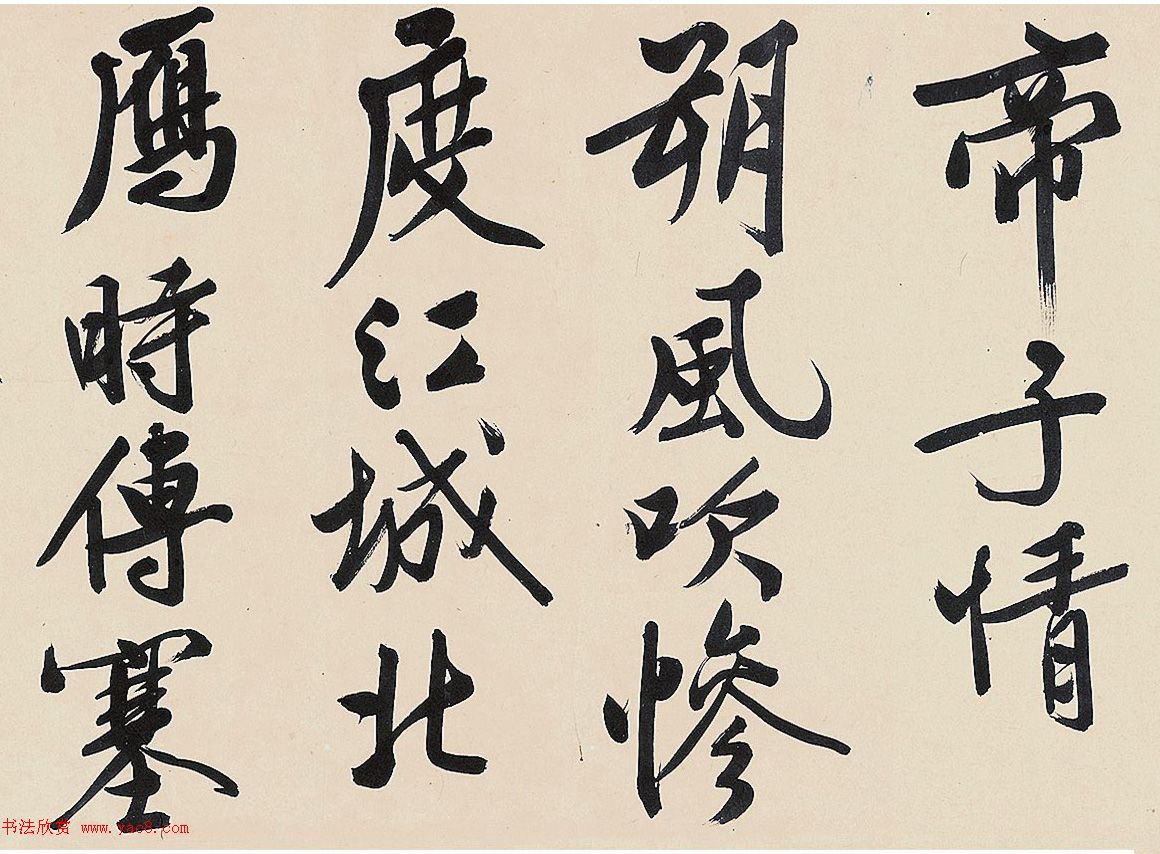 帝子情
朔風吹慘
度江城北
鴈時傳塞
书法欣赏 www.yac8.com